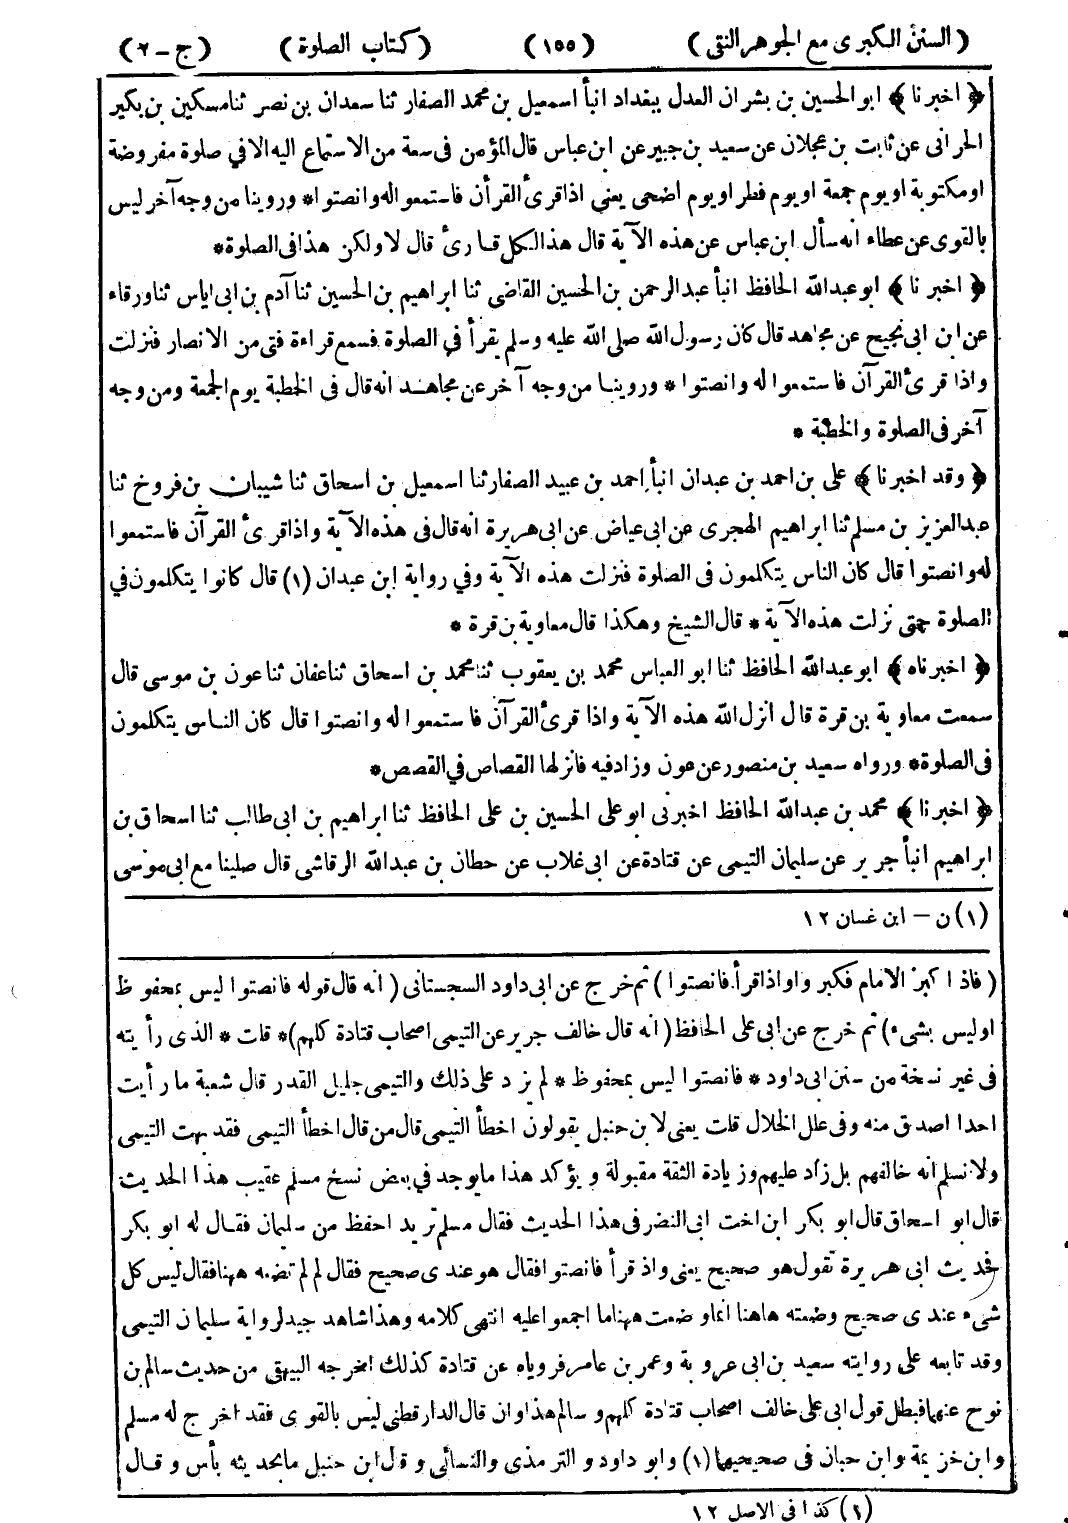 (السنن الكبرى مع الجوهر النقى) (١٥٥) (كتاب الصلوة) (ج - ٢)
﴿ اخبرنا ﴾ ابو الحسين بن بشران العدل ببغداد انبأ اسمعيل بن محمد الصفار ثنا سعدان بن نصر ثنا مسكين بن بكير
الحرانى عن ثابت بن عجلان عن سعيد بن جبير عن ابن عباس قال المؤمن فى سعة من الاستماع اليه الا في صلوة مفروضة
او مكتوبة او يوم جمعة او يوم فطر او يوم اضحى يعنى اذا قرئ القرآن فاستمعوا له وانصتوا * وروينا من وجه آخر ليس
بالقوى عن عطاء انه سأل ابن عباس عن هذه الآية قال هذا لكل قارئ قال لا ولكن هذا فى الصلوة *
﴿ اخبرنا ﴾ ابو عبد الله الحافظ انبأ عبد الرحمن بن الحسين القاضى ثنا ابراهيم بن الحسين ثنا آدم بن ابى اياس ثنا ورقاء
عن ابن ابى نجيح عن مجاهد قال كان رسول الله صلى الله عليه وسلم يقرأ في الصلوة فسمع قراءة فتى من الانصار فنزلت
واذا قرئ القرآن فاستمعوا له وانصتوا * وروينا من وجه آخر عن مجاهد انه قال فى الخطبة يوم الجمعة ومن وجه
آخر فى الصلوة والخطبة *
﴿ وقد اخبرنا ﴾ على بن احمد بن عبدان انبأ احمد بن عبيد الصفار ثنا اسمعيل بن اسحاق ثنا شيبان بن فروخ ثنا
عبد العزيز بن مسلم ثنا ابراهيم الهجرى عن ابى عياض عن ابى هريرة انه قال فى هذه الآية واذا قرئ القرآن فاستمعوا
له وانصتوا قال كان الناس يتكلمون فى الصلوة فنزلت هذه الآية وفي رواية ابن عبدان (١) قال كانوا يتكلمون في
الصلوة حتى نزلت هذه الآية * قال الشيخ وهكذا قال معاوية بن قرة *
﴿ اخبرناه ﴾ ابو عبد الله الحافظ ثنا ابو العباس محمد بن يعقوب ثنا محمد بن اسحاق ثنا عفان ثنا عون بن موسى قال
سمعت معاوية بن قرة قال انزل الله هذه الآية واذا قرئ القرآن فاستمعوا له وانصتوا قال كان الناس يتكلمون
فى الصلوة * ورواه سعيد بن منصور عن عون وزاد فيه فانزلها القصاص في القصص *
﴿ اخبرنا ﴾ محمد بن عبد الله الحافظ اخبرنى ابو على الحسين بن على الحافظ ثنا ابراهيم بن ابى طالب ثنا اسحاق بن
ابراهيم انبأ جرير عن سليمان التيمى عن قتادة عن ابى غلاب عن حطان بن عبد الله الرقاشى قال صلينا مع ابى موسى
(١) ن - ابن غسان ١٢
(فاذا كبر الامام فكبروا واذا قرأ فانصتوا) ثم خرج عن ابى داود السجستانى (انه قال قوله فانصتوا ليس بمحفوظ
او ليس بشىء) ثم خرج عن ابى على الحافظ (انه قال خالف جرير عن التيمى اصحاب قتادة كلهم) * قلت * الذى رأيته
فى غير نسخة من سنن ابى داود * فانصتوا ليس بمحفوظ * لم يزد على ذلك والتيمى جليل القدر قال شعبة ما رأيت
احدا اصدق منه وفى علل الخلال قلت يعنى لابن حنبل يقولون اخطأ التيمى قال من قال اخطأ التيمى فقد بهت التيمى
ولا نسلم انه خالفهم بل زاد عليهم وزيادة الثقة مقبولة ويؤكد هذا ما يوجد في بعض نسخ مسلم عقيب هذا الحديث
قال ابو اسحاق قال ابو بكر ابن اخت ابى النضر فى هذا الحديث فقال مسلم تريد احفظ من سليمان فقال له ابو بكر
فحديث ابى هريرة تقول هو صحيح يعنى واذ قرأ فانصتوا فقال هو عندى صحيح فقال لم لم تضعه ههنا فقال ليس كل
شىء عندى صحيح وضعته هاهنا انما وضعت ههنا ما اجمعوا عليه انتهى كلامه وهذا شاهد جيد لرواية سليمان التيمى
وقد تابعه على روايته سعيد بن ابى عروبة وعمر بن عامر فروياه عن قتادة كذلك اخرجه البيهقى من حديث سالم بن
نوح عنهما فبطل قول ابى على خالف اصحاب قتادة كلهم وسالم هذا وان قال الدارقطنى ليس بالقوى فقد اخرج له مسلم
وابن خزيمة وابن حبان فى صحيحيهما (١) وابو داود والترمذى والنسائى وقال ابن حنبل ما بحديثه بأس وقال
(١) كذا فى الاصل ١٢